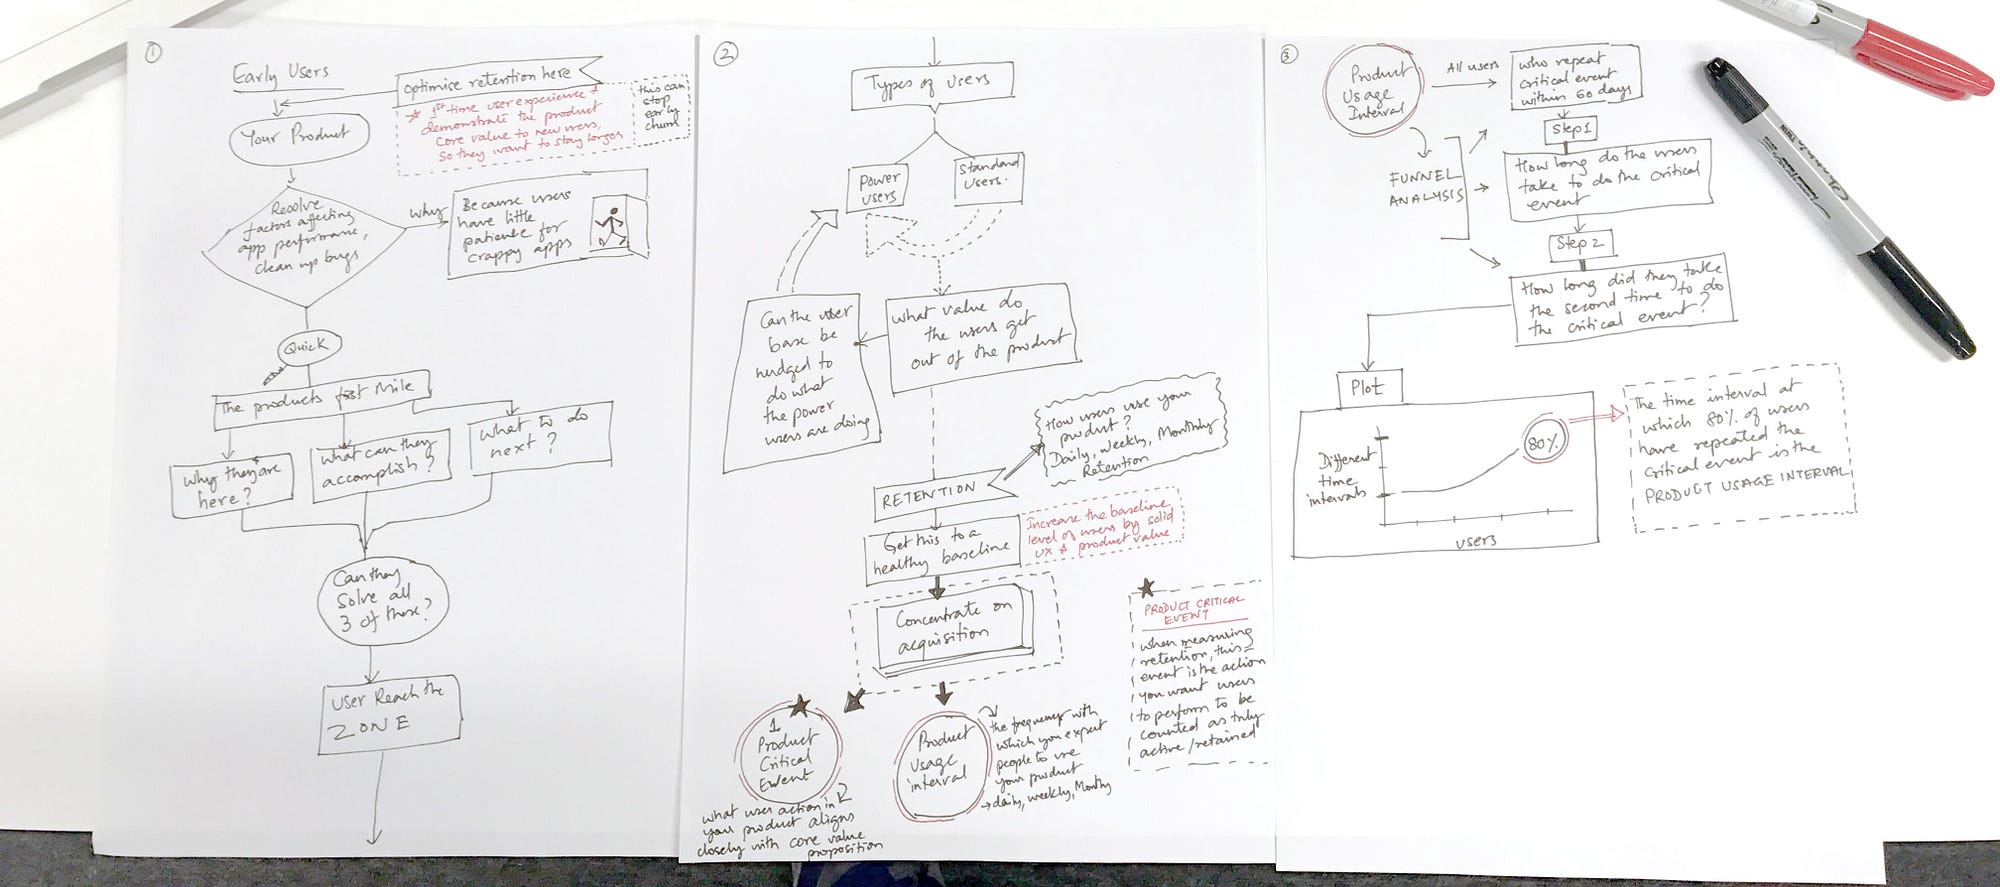 1
Early Users
optimise retention here
this can
stop
early
churn
1st time user experience +
demonstrate the product
core value to new users,
so they want to stay longer
Your Product
Resolve
factors affecting
app performance,
clean up bugs
why
Because users
have little
patience for
crappy apps
Quick
The products first Mile
why they are
here?
what can they
accomplish?
what to do
next?
Can they
solve all
3 of these?
User Reach the
ZONE
2
Types of users
Power
users
Standard
users.
Can the user
base be
nudged to
do what
the power
users are doing
What value do
the users get
out of the product
How users use your
product?
Daily, Weekly, Monthly
Retention
RETENTION
Get this to a
healthy baseline
Increase the baseline
level of users by solid
UX & product value
Concentrate on
acquisition
1.
Product
Critical
Event
what user action in
your product aligns
closely with core value
proposition
Product
Usage
interval
the frequency with
which you expect
people to use
your product
→ daily, weekly, Monthly
PRODUCT CRITICAL
EVENT
when measuring
retention, this
event is the action
you want users
to perform to be
counted as truly
active/retained
3
Product
Usage
Interval
All users
who repeat
critical event
within 60 days
FUNNEL
ANALYSIS
Step 1
How long do the users
take to do the critical
event
Step 2
How long did they take
the second time to do
the critical event?
Plot
Different
time
intervals
80%
users
The time interval at
which 80% of users
have repeated the
critical event is the
PRODUCT USAGE INTERVAL